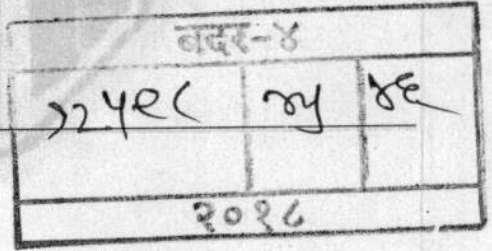 बदर-४
१२५९८ ४५ ४६
२०१८